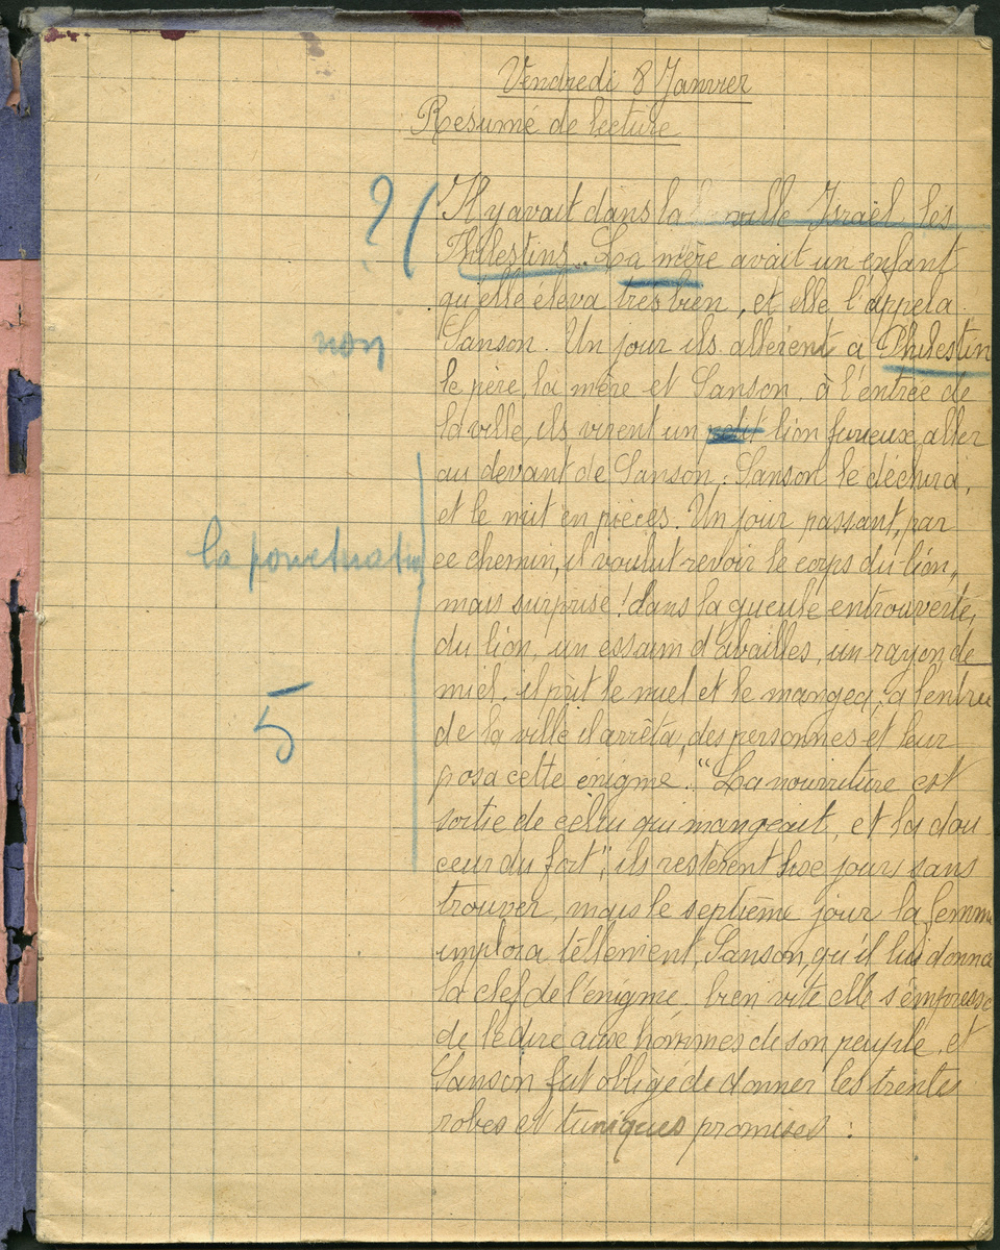 Vendredi 8 Janvier
Résumé de lecture
? ( Il y avait dans la ville Israël les
Philestins. La mère avait un enfant
qu'elle éleva très bien, et elle l'appela
non
Sanson. Un jour ils allèrent à Philestin
le père, la mère et Sanson, à l'entrée de
la ville, ils virent un petit lion furieux aller
au devant de Sanson. Sanson le déchira,
et le mit en pièces. Un jour passant, par
la ponctuation
ce chemin, il voulut revoir le corps du lion,
mais surprise ! dans la gueule entrouverte,
du lion, un essaim d'abailles, un rayon de
miel, il prit le miel et le mangea, à l'entrée
5
de la ville il arrêta, des personnes et leur
posa cette énigme. "La nourriture est
sortie de celui qui mangeait, et la dou
ceur du fort", ils restèrent jours sans
trouver, mais le septième jour la femme
implora têllement, Sanson, qu'il lui donna
la clef de l'énigme. bien vite elle s'empressa
de le dire aux hommes de son peuple, et
Sanson fut obligé de donner les trentes
robes et tuniques promises :